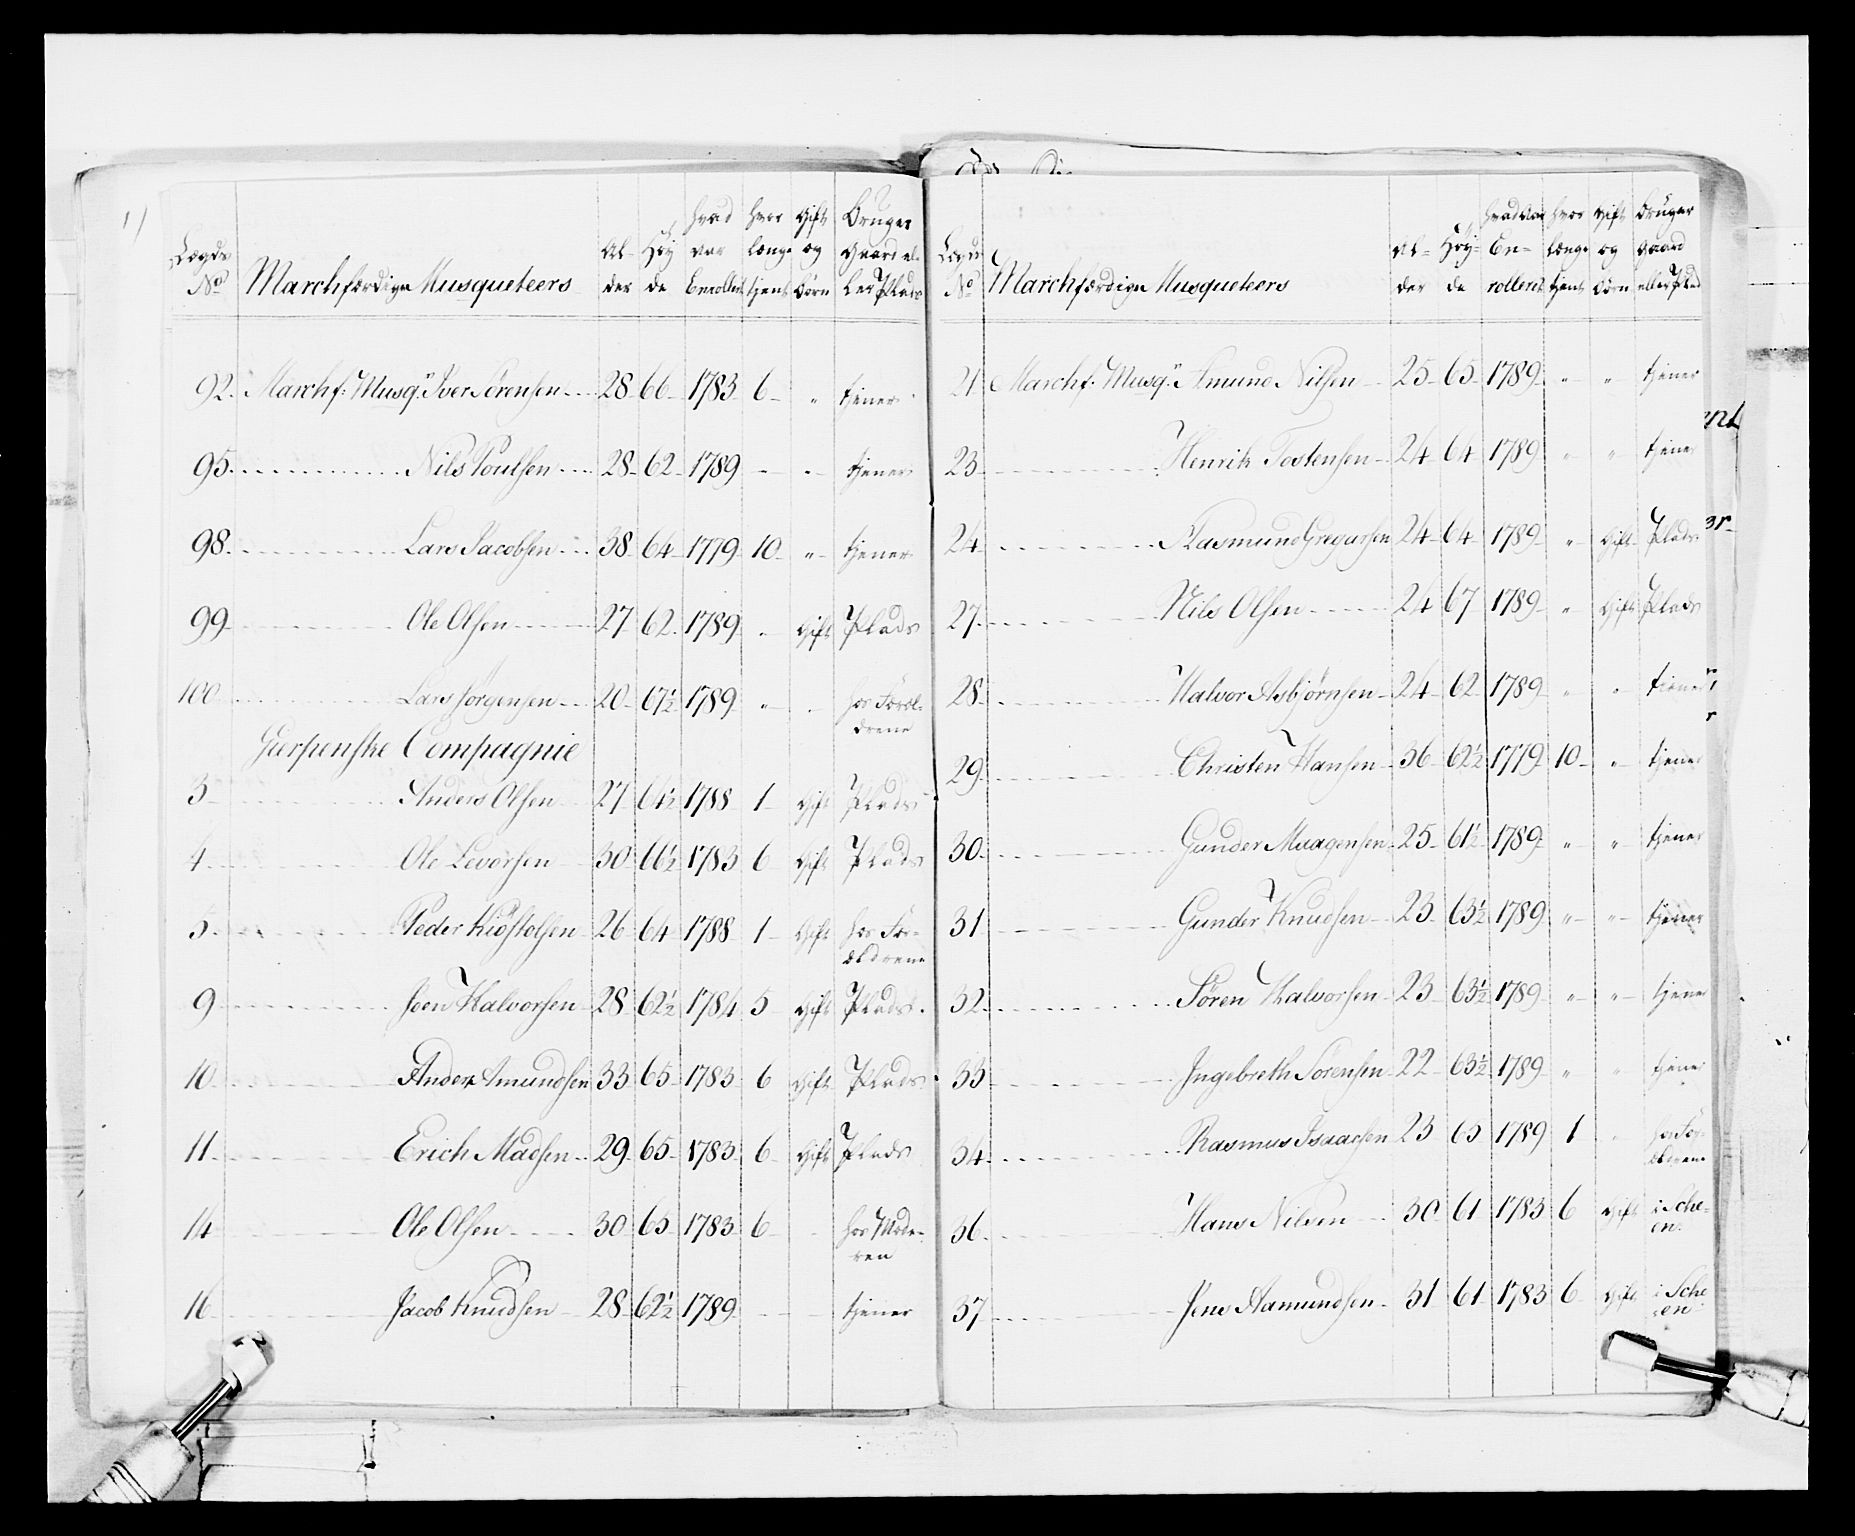 Lægds No Marchfærdige Musqueteers Al- der Höy de hvad var Enrollert hvor længe tjent Gift og Börn Bruger Gaard el- ler Plads
92. Marchf: Musq: Iver Sörensen 28 66 1783 6 " tjener
95. Nils Poulsen 28 62 1789 - - tjener
98. Lars Jacobsen 38 64 1779 10 " tjener
99 Ole Olsen 27 62 1789 - Gift Plads
100 Lars Jörgensen 20 67½ 1789 " - hos Foræl-
drene
Gierpenske Compagnie
3 Anders Olsen 27 64½ 1788 1 Gift Plads
4 Ole Levorsen 30 66½ 1783 6 Gift Plads
5 Peder Kiöstolsen 26 64 1788 1 Gift hos For-
ældrene
9 Joen Halvorsen 28 62½ 1784 5 Gift Plads
10 Anders Amundsen 33 65 1783 6 Gift Plads
11 Erich Madsen 29 65 1783 6 Gift Plads
14 Ole Olsen 30 65 1783 6 - hos Mode-
ren
16 Jacob Knudsen 28 62½ 1789 - - tjener
Lægds No Marchfærdige Musqueteers Al- der Höy- de hvad var En- rollert hvor længe tjent Gift og Börn Bruger Gaard eller Plads
21 Marchf: Musq: Amund Nilsen 25 65 1789 " " tjener
23 Henrik Tostensen 24 64 1789 " " tjener
24 Rasmund Gregersen 24 64 1789 " Gift Plads
27 Nils Olsen 24 67 1789 " Gift Plads
28 Halvor Asbjörnsen 24 62 1789 " " tjener
29 Christen Hansen 36 62½ 1779 10 " tjener
30 Gunder Maagensen 25 61½ 1789 " " tjener
31 Gunder Knudsen 23 63½ 1789 " " tjener
32 Sören Halvorsen 23 63½ 1789 " " tjener
33 Ingebreth Sörensen 22 63½ 1789 " " tjener
34 Rasmus Isaacsen 23 65 1789 1 " hos For-
ældrene
36 Hans Nilsen 30 61 1783 6 Gift i Sche-
en
37 Jens Aamundsen 31 61 1783 6 Gift i Sche
en